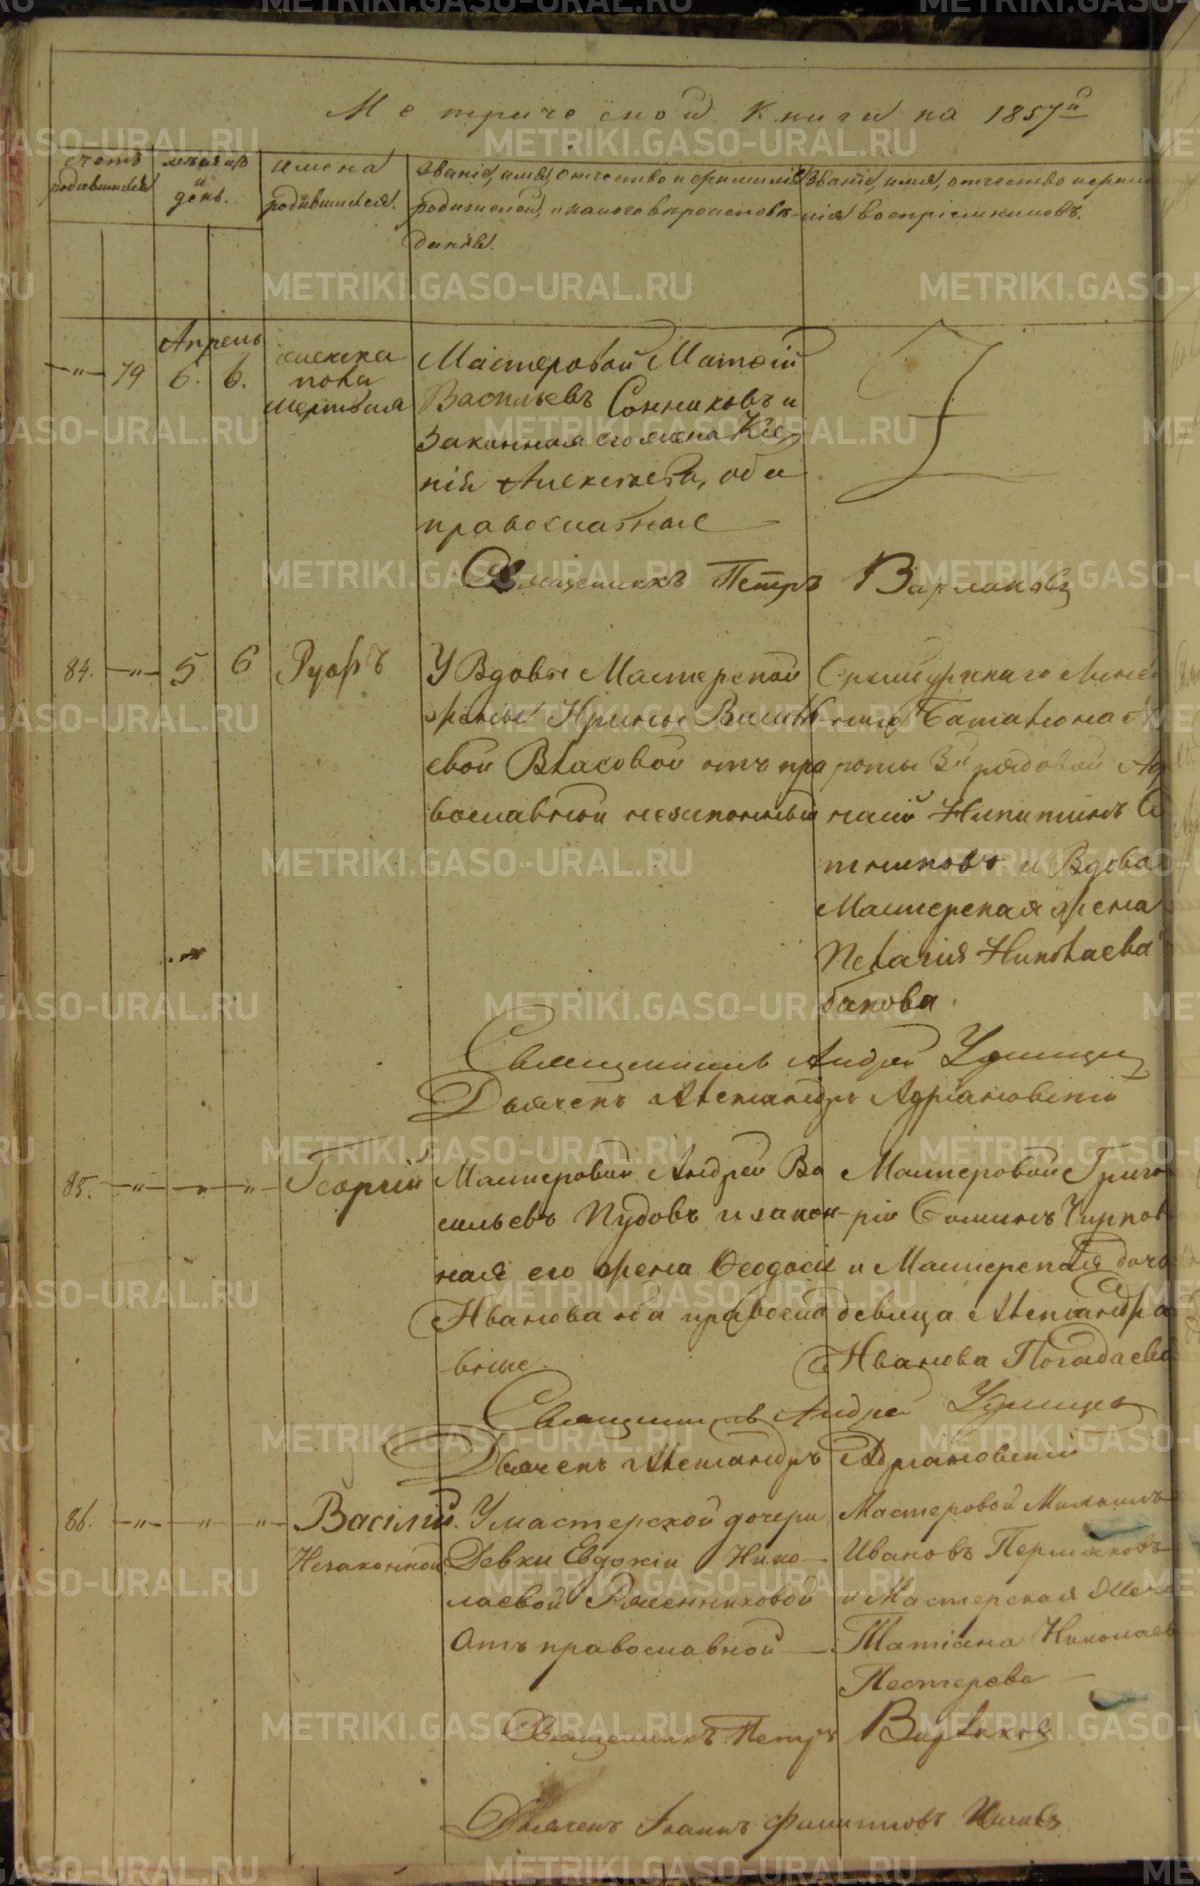 Метрической Книги на 1857й
счетъ родившихся
мѣсяцъ и день.
имена родившихся.
Званіе, имя, отчество и фамилія
родителей, и какого вѣроисповѣ-
данія.
Званіе, имя, отчество и фами-
лія воспріемниковъ.
Апрель
-"- 79 6. 6.
мертвая
Мастеровой Матвій
Васильевъ Сонниковъ и
Законная его жена
Алексѣева, оба
православные
Священникъ Петръ Варлаковъ
84. -"- 5 6
У Вдовы Мастерской
жены Ирины Василь-
евой Власовой отъ пра
вославной незаконный
Линей
наго Баталіона
роты 3й рядовой
Никитинъ
и Вдова
Мастерская жена
Пелагия Николаева
бакова.
Священникъ Андрей Удинцевъ
Дьячекъ Александръ Адріановскій
85. -"- " " Георгій
Мастеровой Андрей Ва
сильевъ Пудовъ и закон-
ная его жена Ѳеодосія
Иванова оба правосла
вные.
Мастеровой Григо
рій Ѳоминъ Чирков
и Мастерская дочь
девица Александра
Иванова Погадаева
Священникъ Андрей Удинцевъ
Дьячекъ Александръ Адріановскій
86. -"- " " Василій.
Незаконной
У мастерской дочери
Девки Евдокіи Нико-
лаевой
Отъ православной
Мастеровой Михаилъ
Ивановъ Пермяковъ
и Мастерская Жена
Татіана Николаев
Пестерева
Священникъ Петръ Варлаков
Дьячекъ Іоаннъ Филипповъ
METRIKI.GASO-URAL.RU